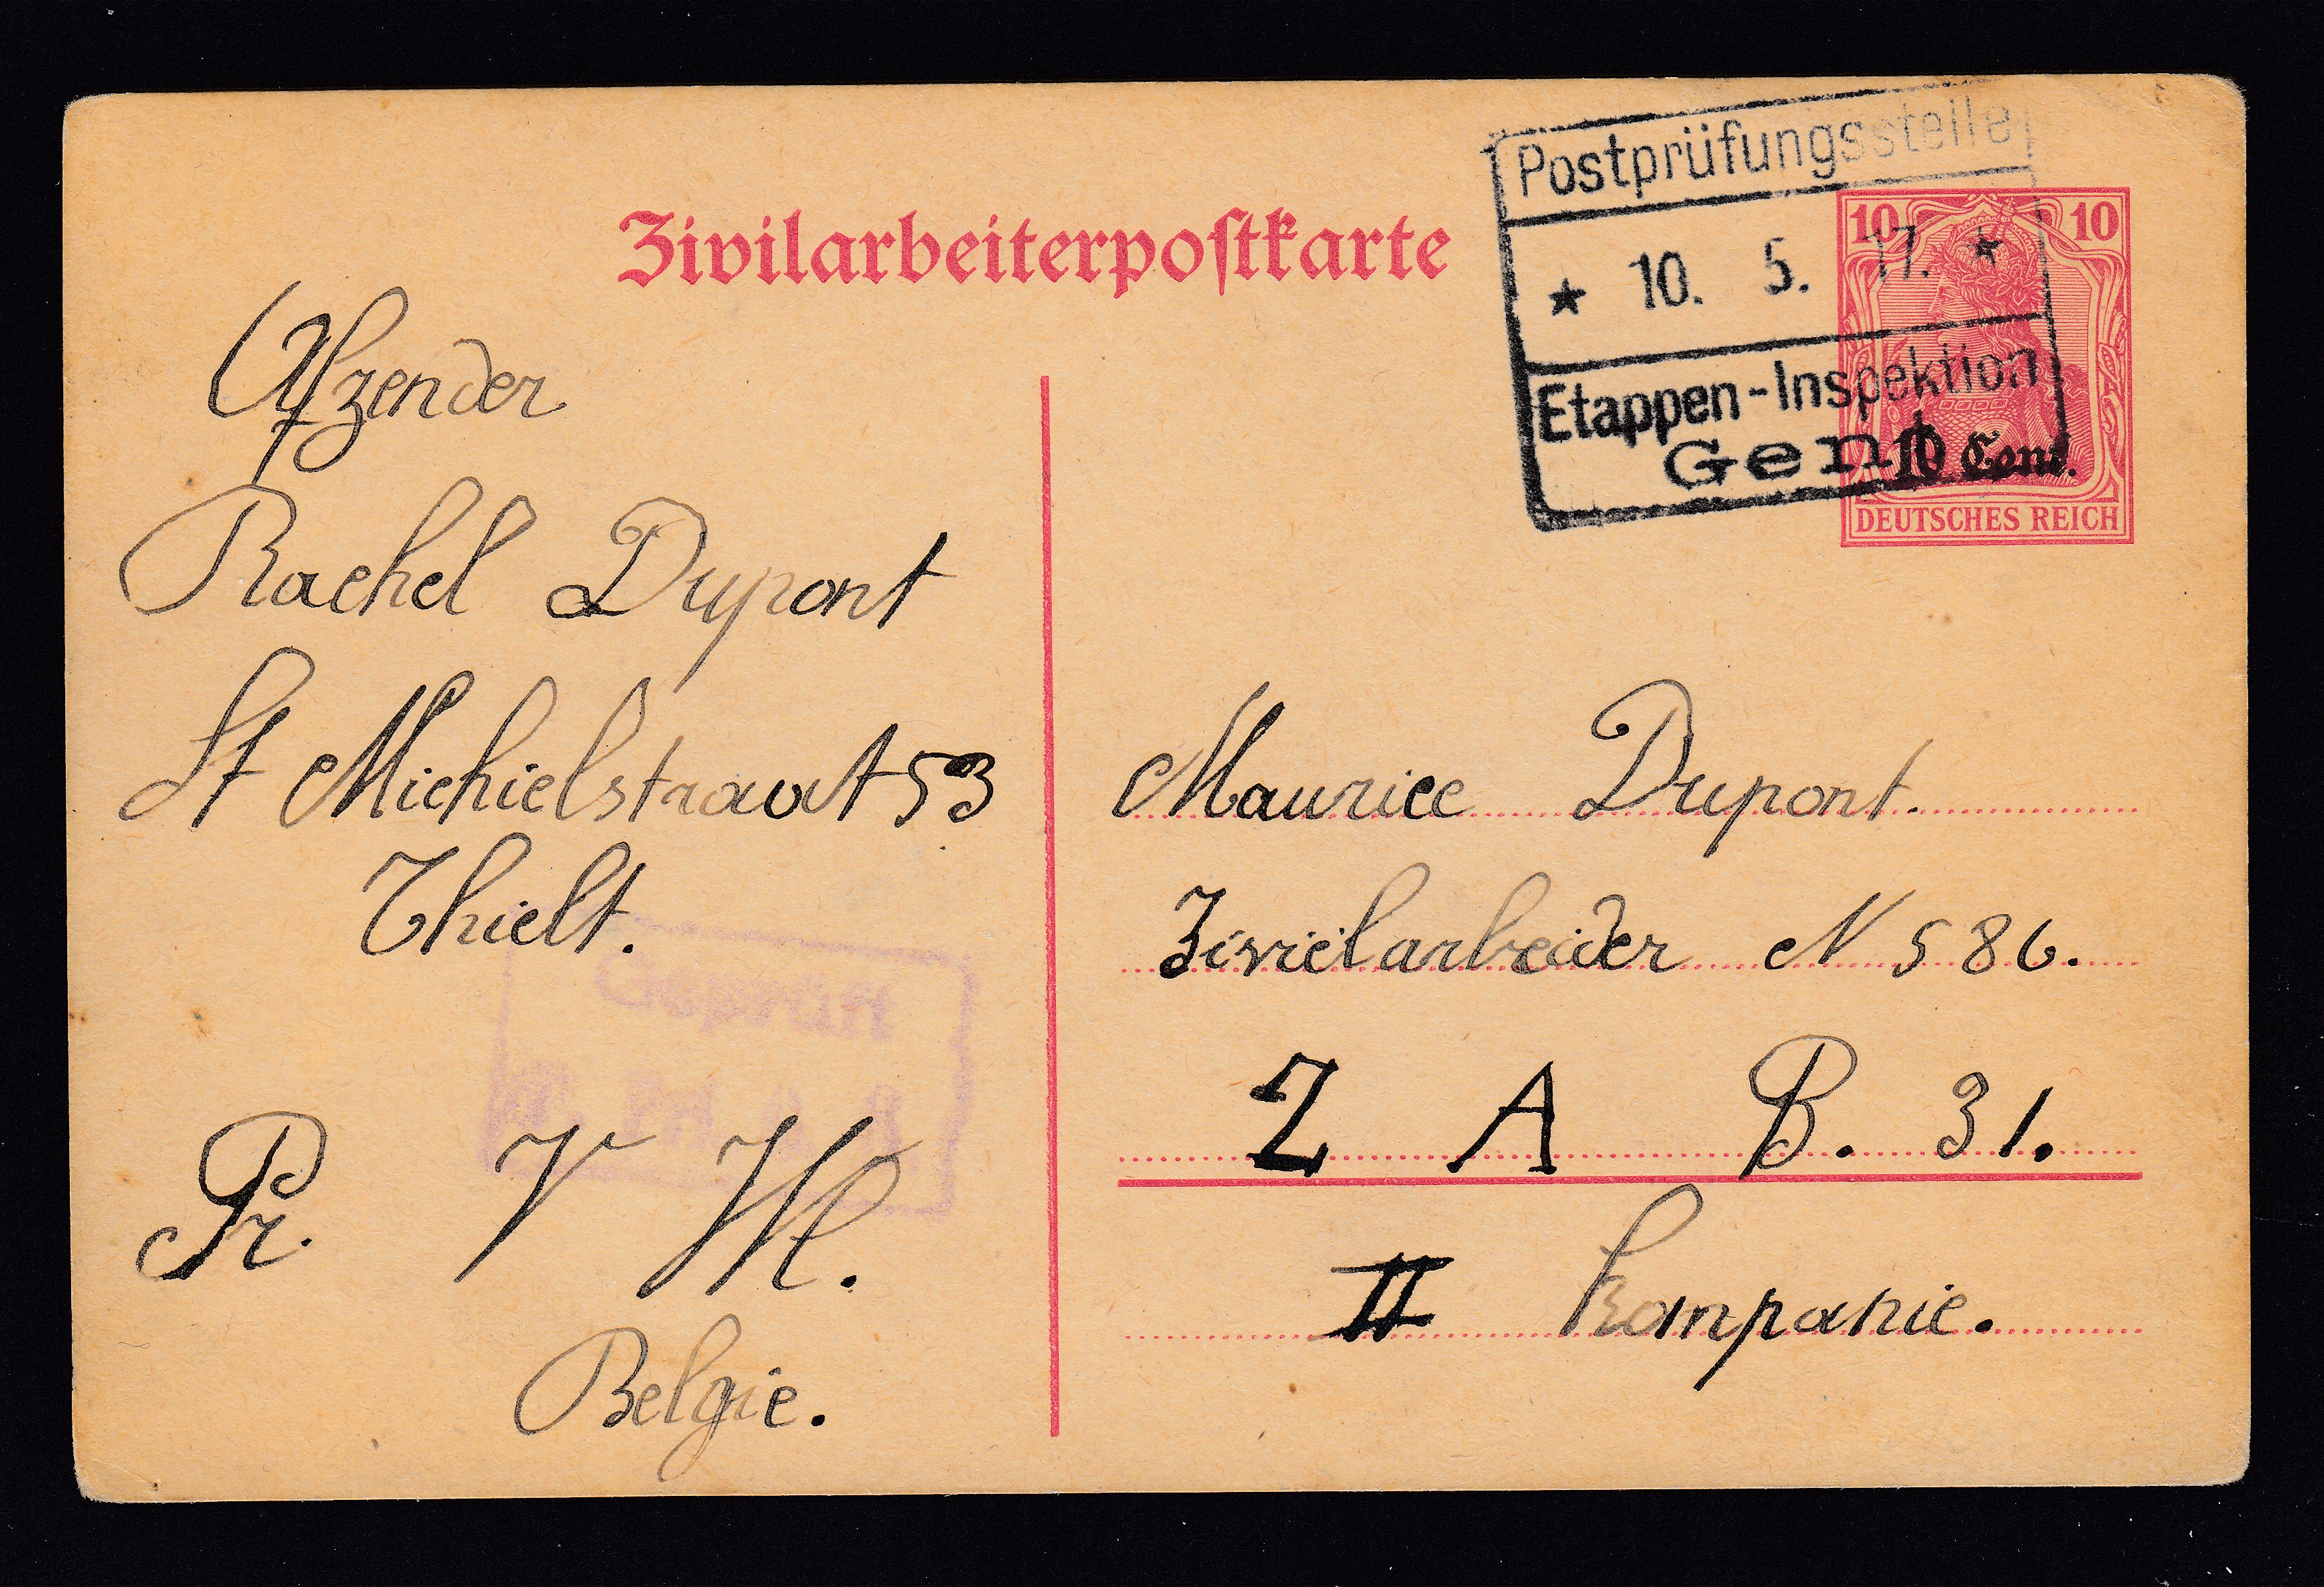 Zivilarbeiterpostkarte
Postprüfungsstelle
★ 10. 5. 17. ★
Etappen-Inspektion
Gent
10 10
10 Cent.
DEUTSCHES REICH
Afzender
Rachel Dupont
St Michielstraat 53
Thielt.
Geprüft
Pr. V Vl.
Belgie.
Maurice Dupont.
Ziviëlarbeider N 586.
Z A B. 31.
II Kompanie.